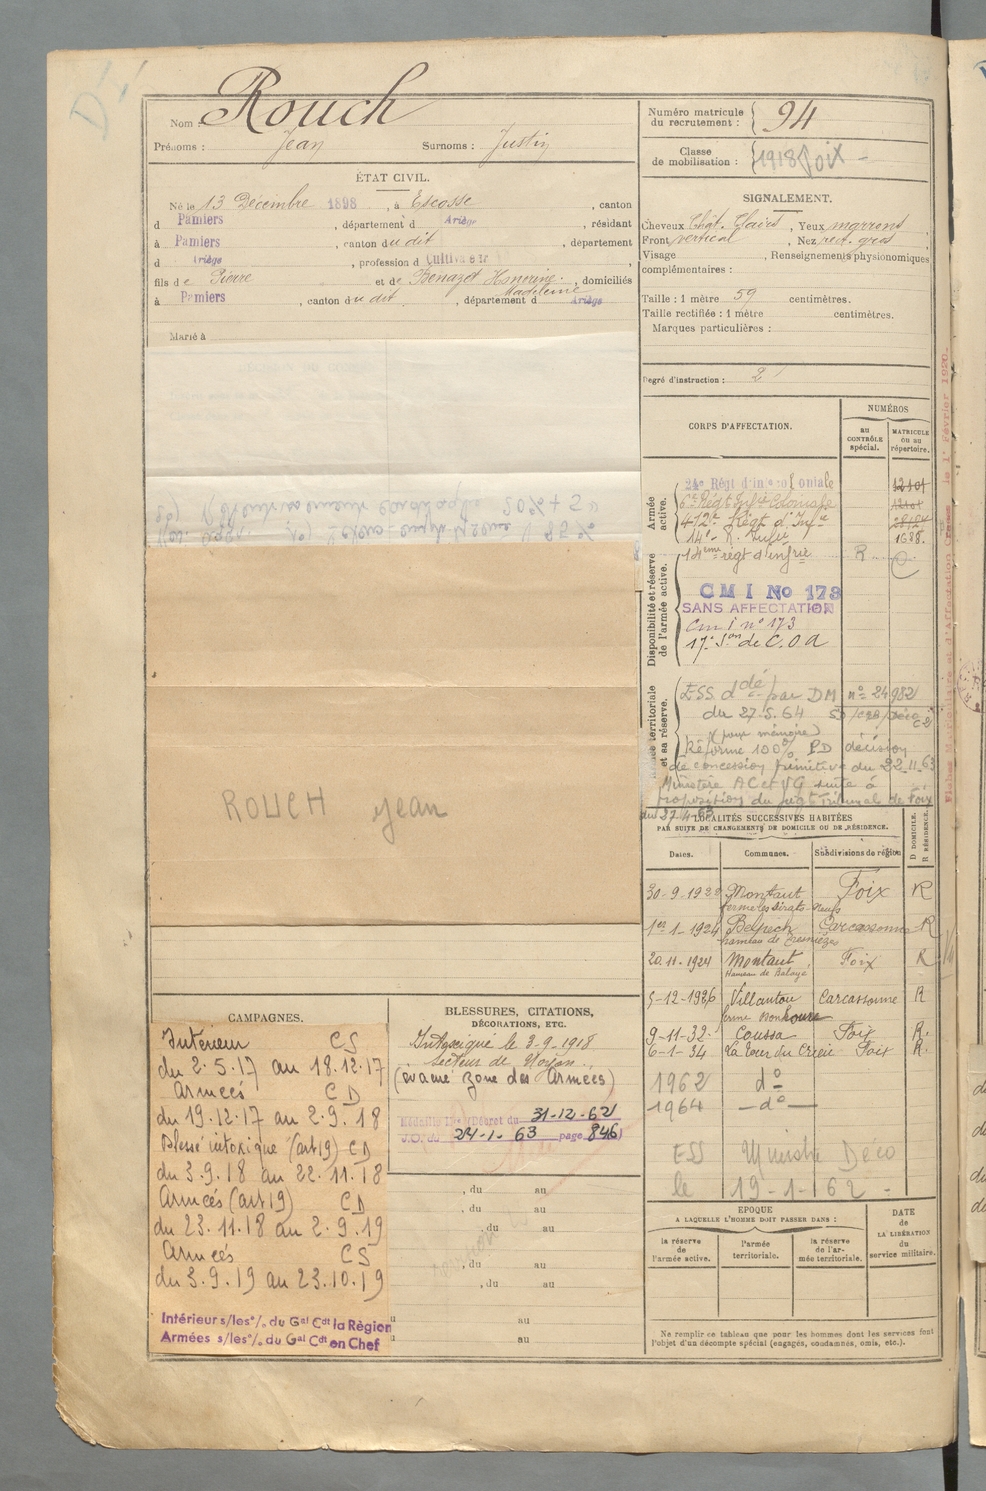 Nom : Rouch
Prénoms : Jean Surnoms : Justin
ÉTAT CIVIL.
Né le 13 Décembre 1898, à Escosse, canton
d Pamiers, département d Ariège, résidant
à Pamiers, canton du dit, département
d Ariège, profession d Cultivateur
fils de Pierre et de Benazet Honorine Madeleine, domiciliés
à Pamiers, canton du dit, département d Ariège
Marié à
ROUCH Jean
CAMPAGNES.
Intérieur CS
du 2.5.17 au 18.12.17
Armées CD
du 19.12.17 au 2.9.18
Blessé intoxiqué (art 19) CD
du 3.9.18 au 22.11.18
Armées (art 19) CD
du 23.11.18 au 2.9.19
Armées CS
du 3.9.19 au 23.10.19
Intérieur s/les o/. du Gal Cdt la Région
Armées s/les o/. du Gal Cdt en Chef
BLESSURES, CITATIONS,
DÉCORATIONS, ETC.
Intoxiqué le 3-9-1918
secteur de Noyon.
(évacué zone des Armées)
Décret du 31-12-62
J.O. du 24-1-63 page 846)
, du au
, du au
, du au
, du au
, du au
au
au
Numéro matricule
du recrutement : 94
Classe
de mobilisation : 1918 Foix
SIGNALEMENT.
Cheveux Chât. Clairs, Yeux marrons
Front vertical, Nez rect. gros
Visage , Renseignements physionomiques
complémentaires :
Taille : 1 mètre 59 centimètres.
Taille rectifiée : 1 mètre centimètres.
Marques particulières :
Degré d'instruction : 2
CORPS D'AFFECTATION.
NUMÉROS
AU CONTRÔLE spécial.
MATRICULE ou au répertoire.
Armée active.
24e Régt d'inf Coloniale
6e Régt Infie Coloniale
412e Régt d'Infie
14e R. Infie 1688.
Disponibilité et réserve de l'armée active.
14ème régt d'infrie R
CMI No 173
SANS AFFECTATION
Cmi n° 173
17e Son de C.O.A
Armée territoriale et sa réserve.
ESS dé par DM n° 24982
du 27.5.64
(pour mémoire)
Réforme 100% PD décision
de concession primitive du 22.11.63
Ministère AC et VG suite à
proposition du Tribunal de Foix
LOCALITÉS SUCCESSIVES HABITÉES
PAR SUITE DE CHANGEMENTS DE DOMICILE OU DE RÉSIDENCE.
Dates. Communes. Subdivisions de région
D DOMICILE. R RÉSIDENCE.
30-9-1922 Montaut Foix R
1er-1-1924 Belpech Carcassonne R
20-11-1924 Montaut Foix R
5-12-1926 Villautou Carcassonne R
ferme Bonhoure
9-11-32 Coussa Foix R.
6-1-34 La Tour du Crieu Foix R.
1962 d°
1964 d°
ESS Ministre Deco
le 19-1-62
ÉPOQUE
A LAQUELLE L'HOMME DOIT PASSER DANS :
DATE de LA LIBÉRATION du service militaire.
la réserve de l'armée active.
l'armée territoriale.
la réserve de l'armée territoriale.
Ne remplir ce tableau que pour les hommes dont les services font
l'objet d'un décompte spécial (engagés, condamnés, omis, etc.).